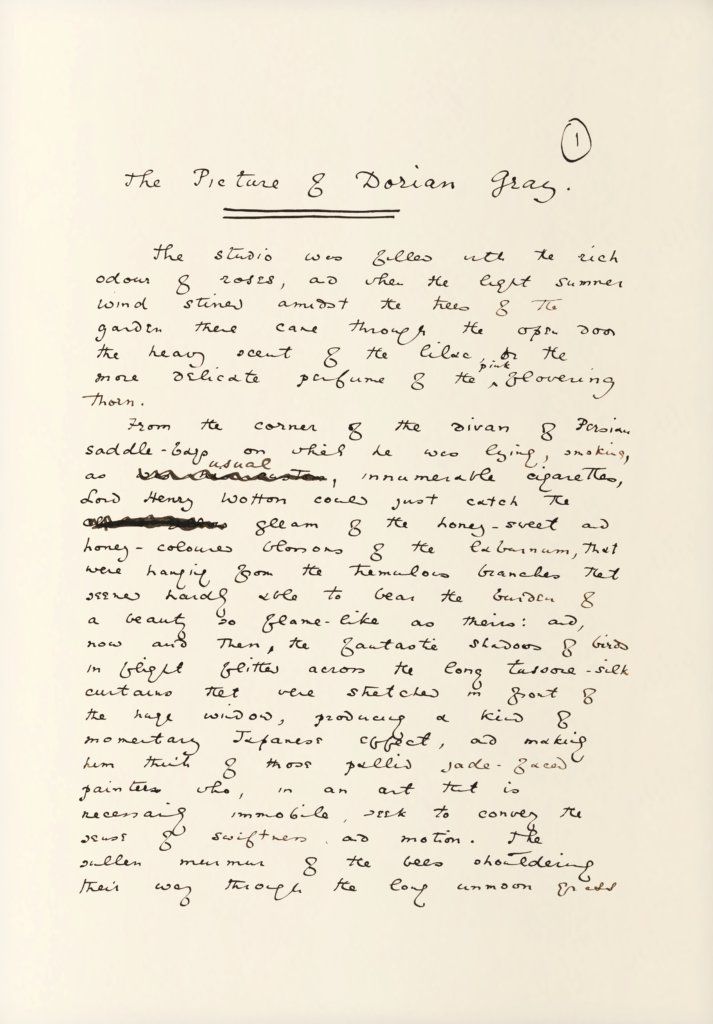 1
The Picture of Dorian Gray.
The studio was filled with the rich
odour of roses, and when the light summer
wind stirred amidst the trees of the
garden there came through the open door
the heavy scent of the lilac, or the
more delicate perfume of the pink flowering
thorn.
From the corner of the divan of Persian
saddle-bags on which he was lying, smoking,
as usual, innumerable cigarettes,
Lord Henry Wotton could just catch the
gleam of the honey-sweet and
honey-coloured blossoms of the laburnum, that
were hanging from the tremulous branches that
seemed hardly able to bear the burden of
a beauty so flame-like as theirs: and,
now and then, the fantastic shadows of birds
in flight flitted across the long tussore-silk
curtains that were stretched in front of
the huge window, producing a kind of
momentary Japanese effect, and making
him think of those pallid jade-faced
painters who, in an art that is
necessarily immobile, seek to convey the
sense of swiftness and motion. The
sullen murmur of the bees shouldering
their way through the long unmown grass